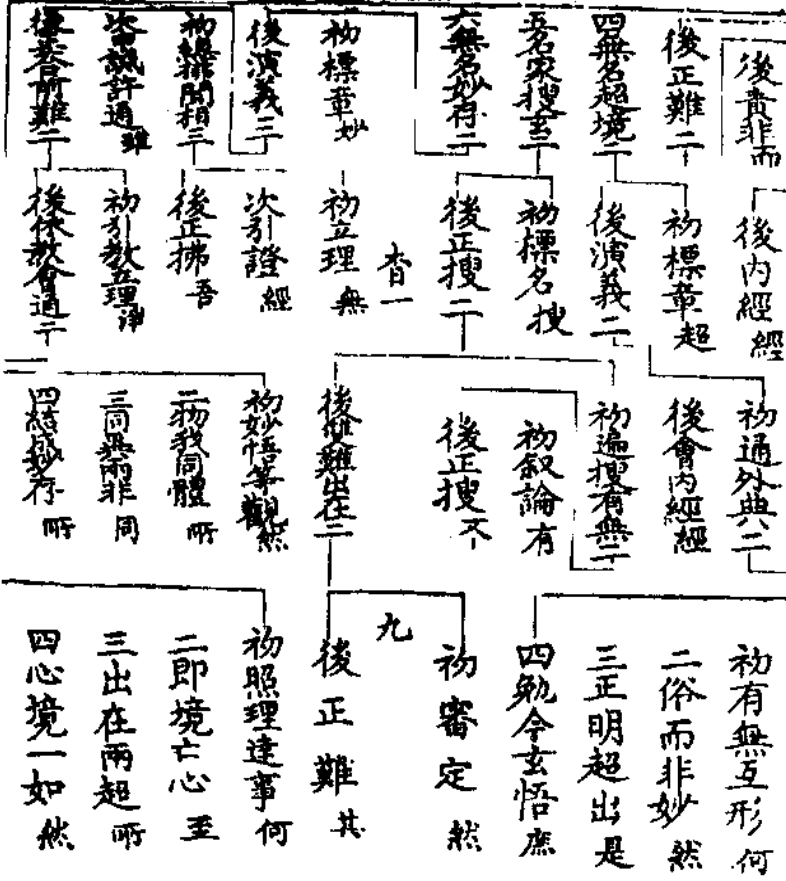 後責非而
後正難二
四無名超境二
五名家搜玄二
六無名妙存二
初標章妙
後演義三
初總揀聞相三
次審誠許通雖
標答前難二
後內經經
初標章超
後演義二
初標名搜
後正搜二
杳一
初立理無
次引證經
後正拂吾
初引教立理淨
後依教會通二
初通外典二
後會內經經
初遍搜有無二
初叙論有
後正搜不
後雙難出在二
初妙悟等觀然
二物我同體所
三同異兩非同
四結成妙存所
初有無互形何
二俗而非妙然
三正明超出是
四勉令玄悟庶
初審定然
九
後正難其
初照理達事何
二即境亡心至
三出在兩超所
四心境一如然